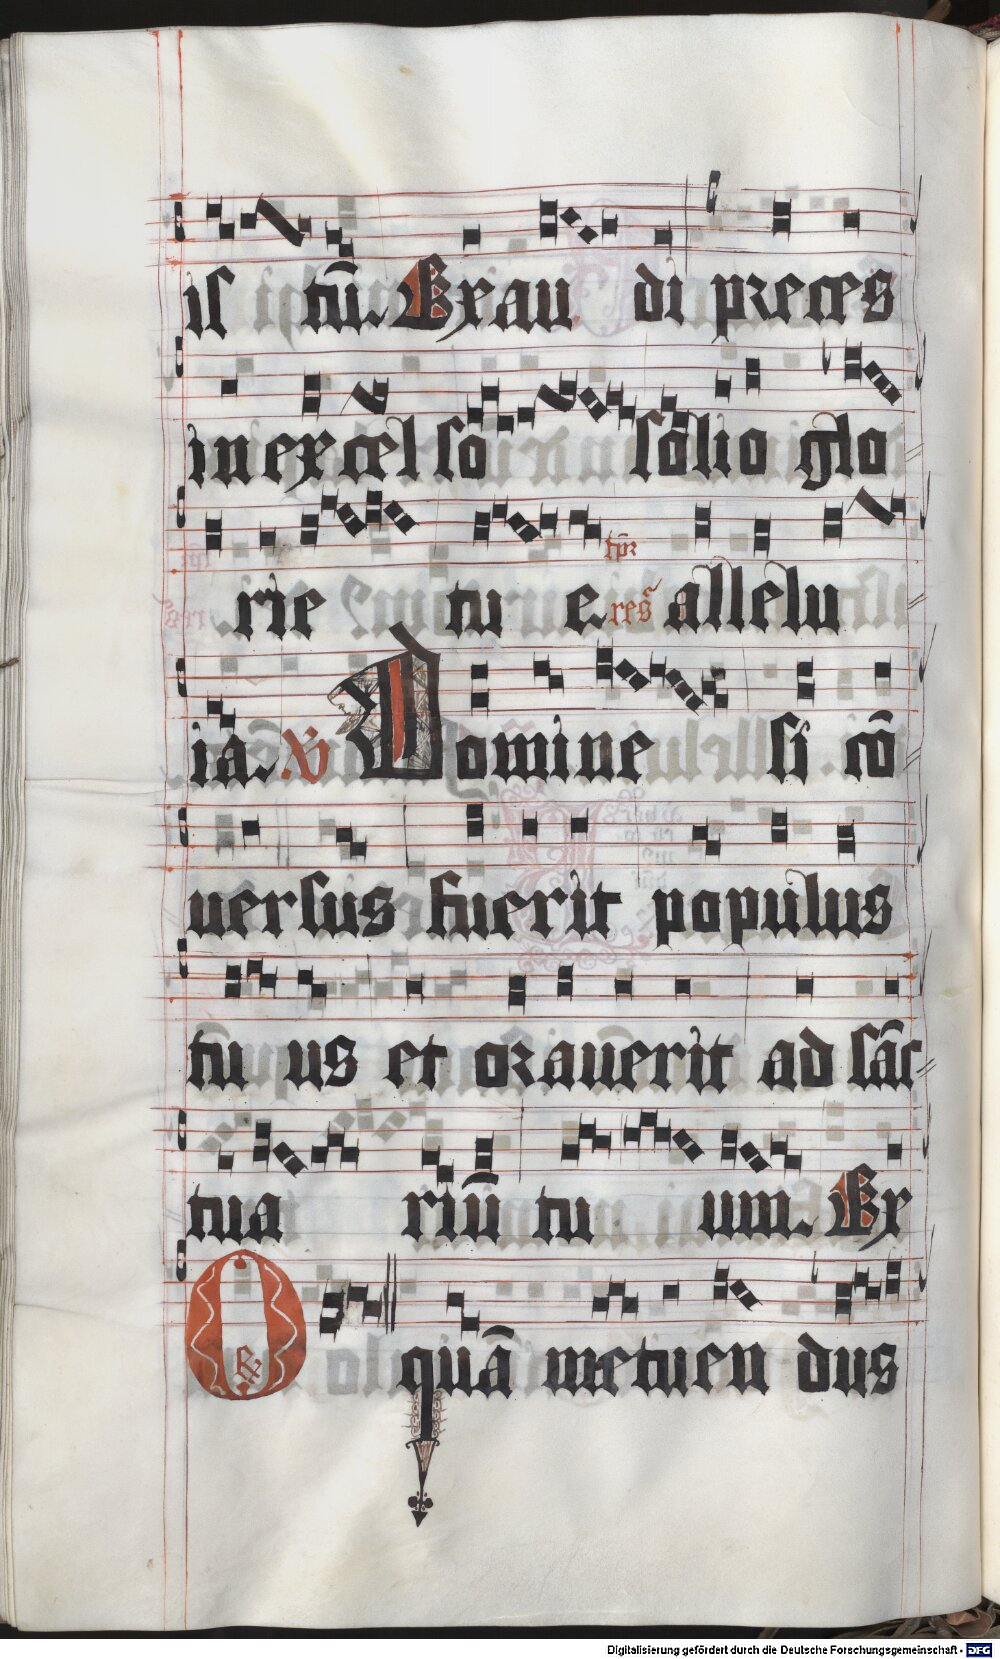 is tū. Exau di preces
in excel so solio glo
tpr
rie tu e. res allelu
ia. V Domine si cō
uersus fuerit populus
tu us et orauerit ad sāc
tua riū tu um. Ex
O quā metuen dus
R
Digitalisierung gefördert durch die Deutsche Forschungsgemeinschaft - DFG